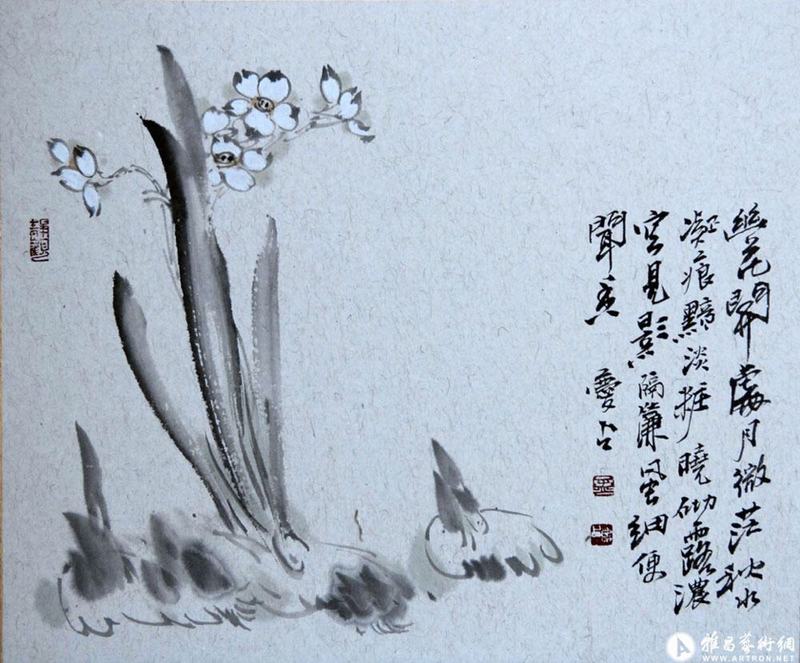 幽花開處月微茫秋水
凝痕黯淡粧曉砌露濃
空見影隔簾風細便
聞香
雅昌藝術網
WWW.ARTRON.NET